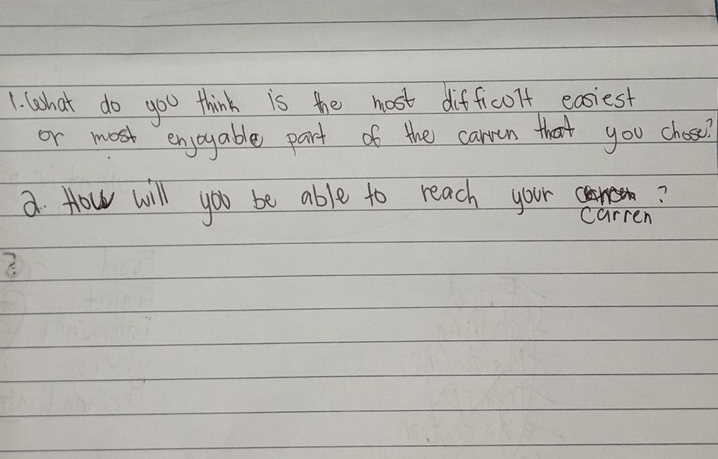 1. What do you think is the most difficolt easiest
or most enjoyable part of the carren that you chose?
2. How will you be able to reach your ?
carren
2